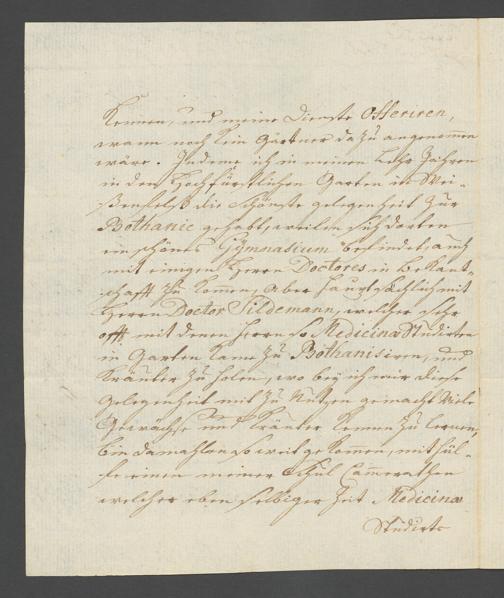 Kennen, und meine Dienste Offeriren,
wann noch kein Gärtner dazu angenommen
wäre. Indeme ich in meinen Lehr Jahren
in den Hochfürstlichen Garten in Wei-
ßenfelß die schönste gelegenheit zur
Bothanic gehabt, weilen sich dorten
ein schönes Gymnasium befindet, auch
mit einigen Herrn Doctores in bekant-
schafft zu kommen, aber hauptsächlich mit
Herrn Doctor Sildemann, welcher sehr
offt mit denen Herrn so Medicinæ Studirten
in Garten kame zu Bothanisiren, und
Kräuter zu holen, wo bey ich mir diese
gelegenheit mit zu Nutzen gemacht Viele
Gewächse und Kräuter kennen zu lernen,
bin damahlen so weit gekommen, mit hül-
fe einen meiner Schul Camerathen
welcher eben selbiger Zeit Medicinæ
Studirte